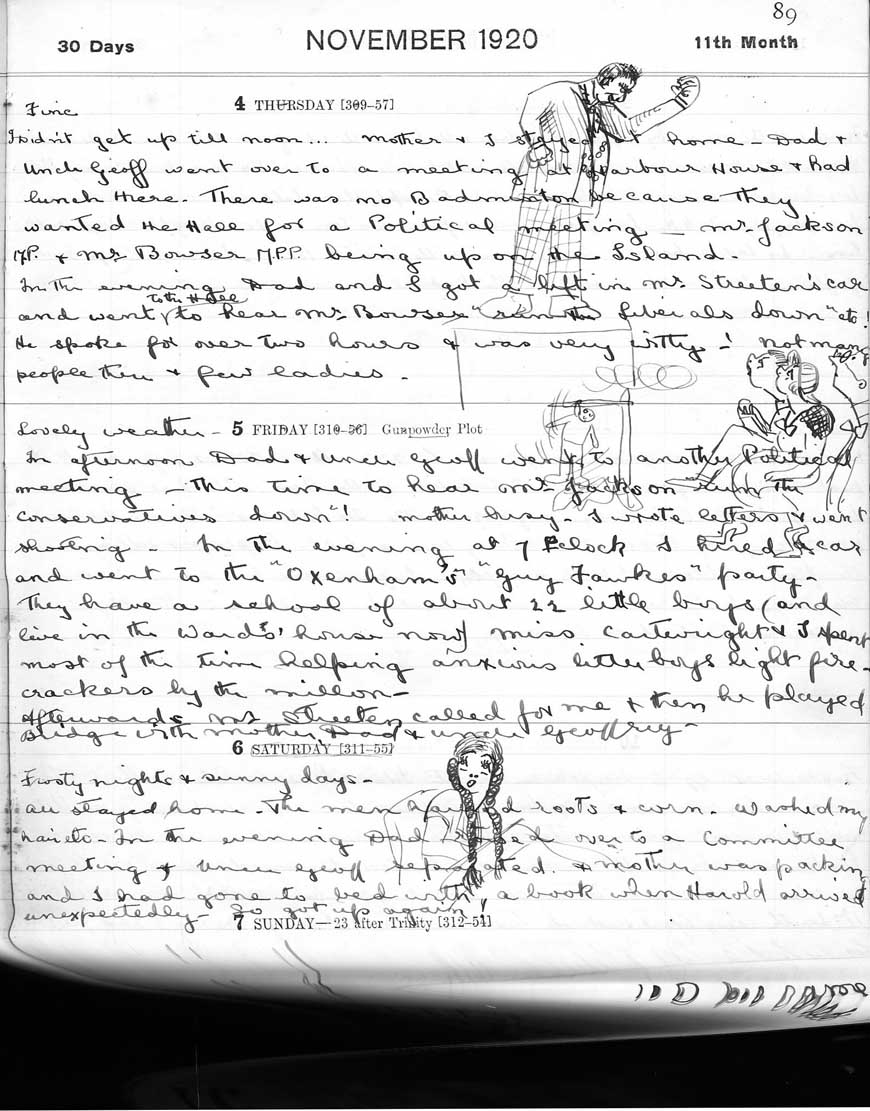 89
30 Days NOVEMBER 1920 11th Month
4 THURSDAY [309-57]
Fine
I didn't get up till noon... Mother & I stayed at home - Dad &
Uncle Geoff went over to a meeting at Harbour House & had
lunch there. There was no Badminton because they
wanted the Hall for a Political meeting - Mr. Jackson
M.P. & Mr Bowser M.P.P. being up on the Island.
In the evening Dad and I got a lift in Mr. Streeten's car
to the Hall
and went to hear Mr. Bowser "run the Liberals down" etc!
He spoke for over two hours & was very witty -! not many
people there & few ladies.
5 FRIDAY [310-56] Gunpowder Plot
Lovely weather -
In afternoon Dad & Uncle Geoff went to another Political
meeting - this time to hear Mr Jackson "run the
Conservatives down"! Mother busy - I wrote letters & went
shooting - In the evening at 7 o'clock I hired a car
and went to the "Oxenham's" "Guy Fawkes" party -
They have a school of about 22 little boys (and
live in the Wards' house now) Miss Cartwright & I spent
most of the time helping anxious little boys light fire-
crackers by the million -
Afterwards Mr Streeten called for me & then he played
Bridge with Mother, Dad & Uncle Geoffrey -
6 SATURDAY [311-55]
Frosty nights & sunny days -
All stayed home - The men hauled roots & corn. Washed my
hair etc - In the evening Dad over to a Committee
meeting & Uncle Geoff & Mother was packing
and I had gone to bed with a book when Harold arrived
unexpectedly - So got up again!
7 SUNDAY—23 after Trinity [312-54]